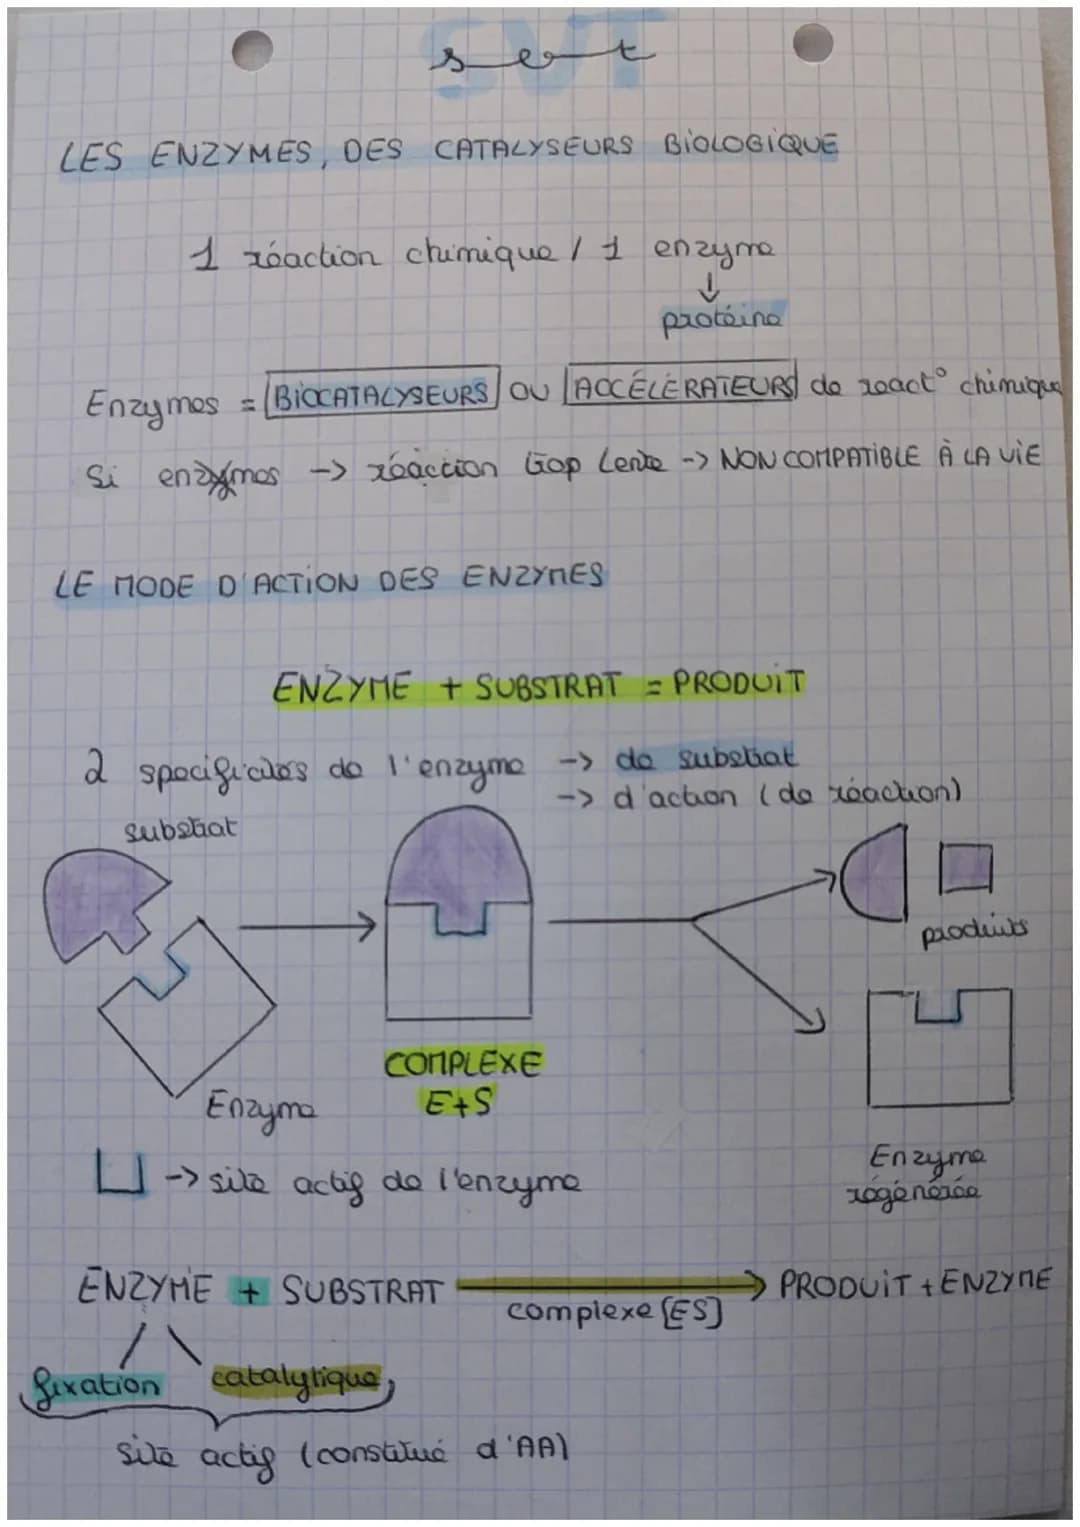 SVT
LES ENZYMES, DES CATALYSEURS BIOLOGIQUE
1 réaction chimique / 1 enzyme
↓
protéine
Enzymes = BIOCATALYSEURS OU ACCÉLÉRATEURS de react° chimique
Si enzymes -> réaction trop lente -> NON COMPATIBLE À LA VIE
LE MODE D'ACTION DES ENZYMES
ENZYME + SUBSTRAT = PRODUIT
2 specificités de l'enzyme -> de substrat
-> d'action (de réaction)
substrat
produits
COMPLEXE
E+S
Enzyme
-> site actif de l'enzyme
Enzyme
régénérée
ENZYME + SUBSTRAT → PRODUIT + ENZYME
complexe [ES]
fixation catalytique
site actif (constitué d'AA)